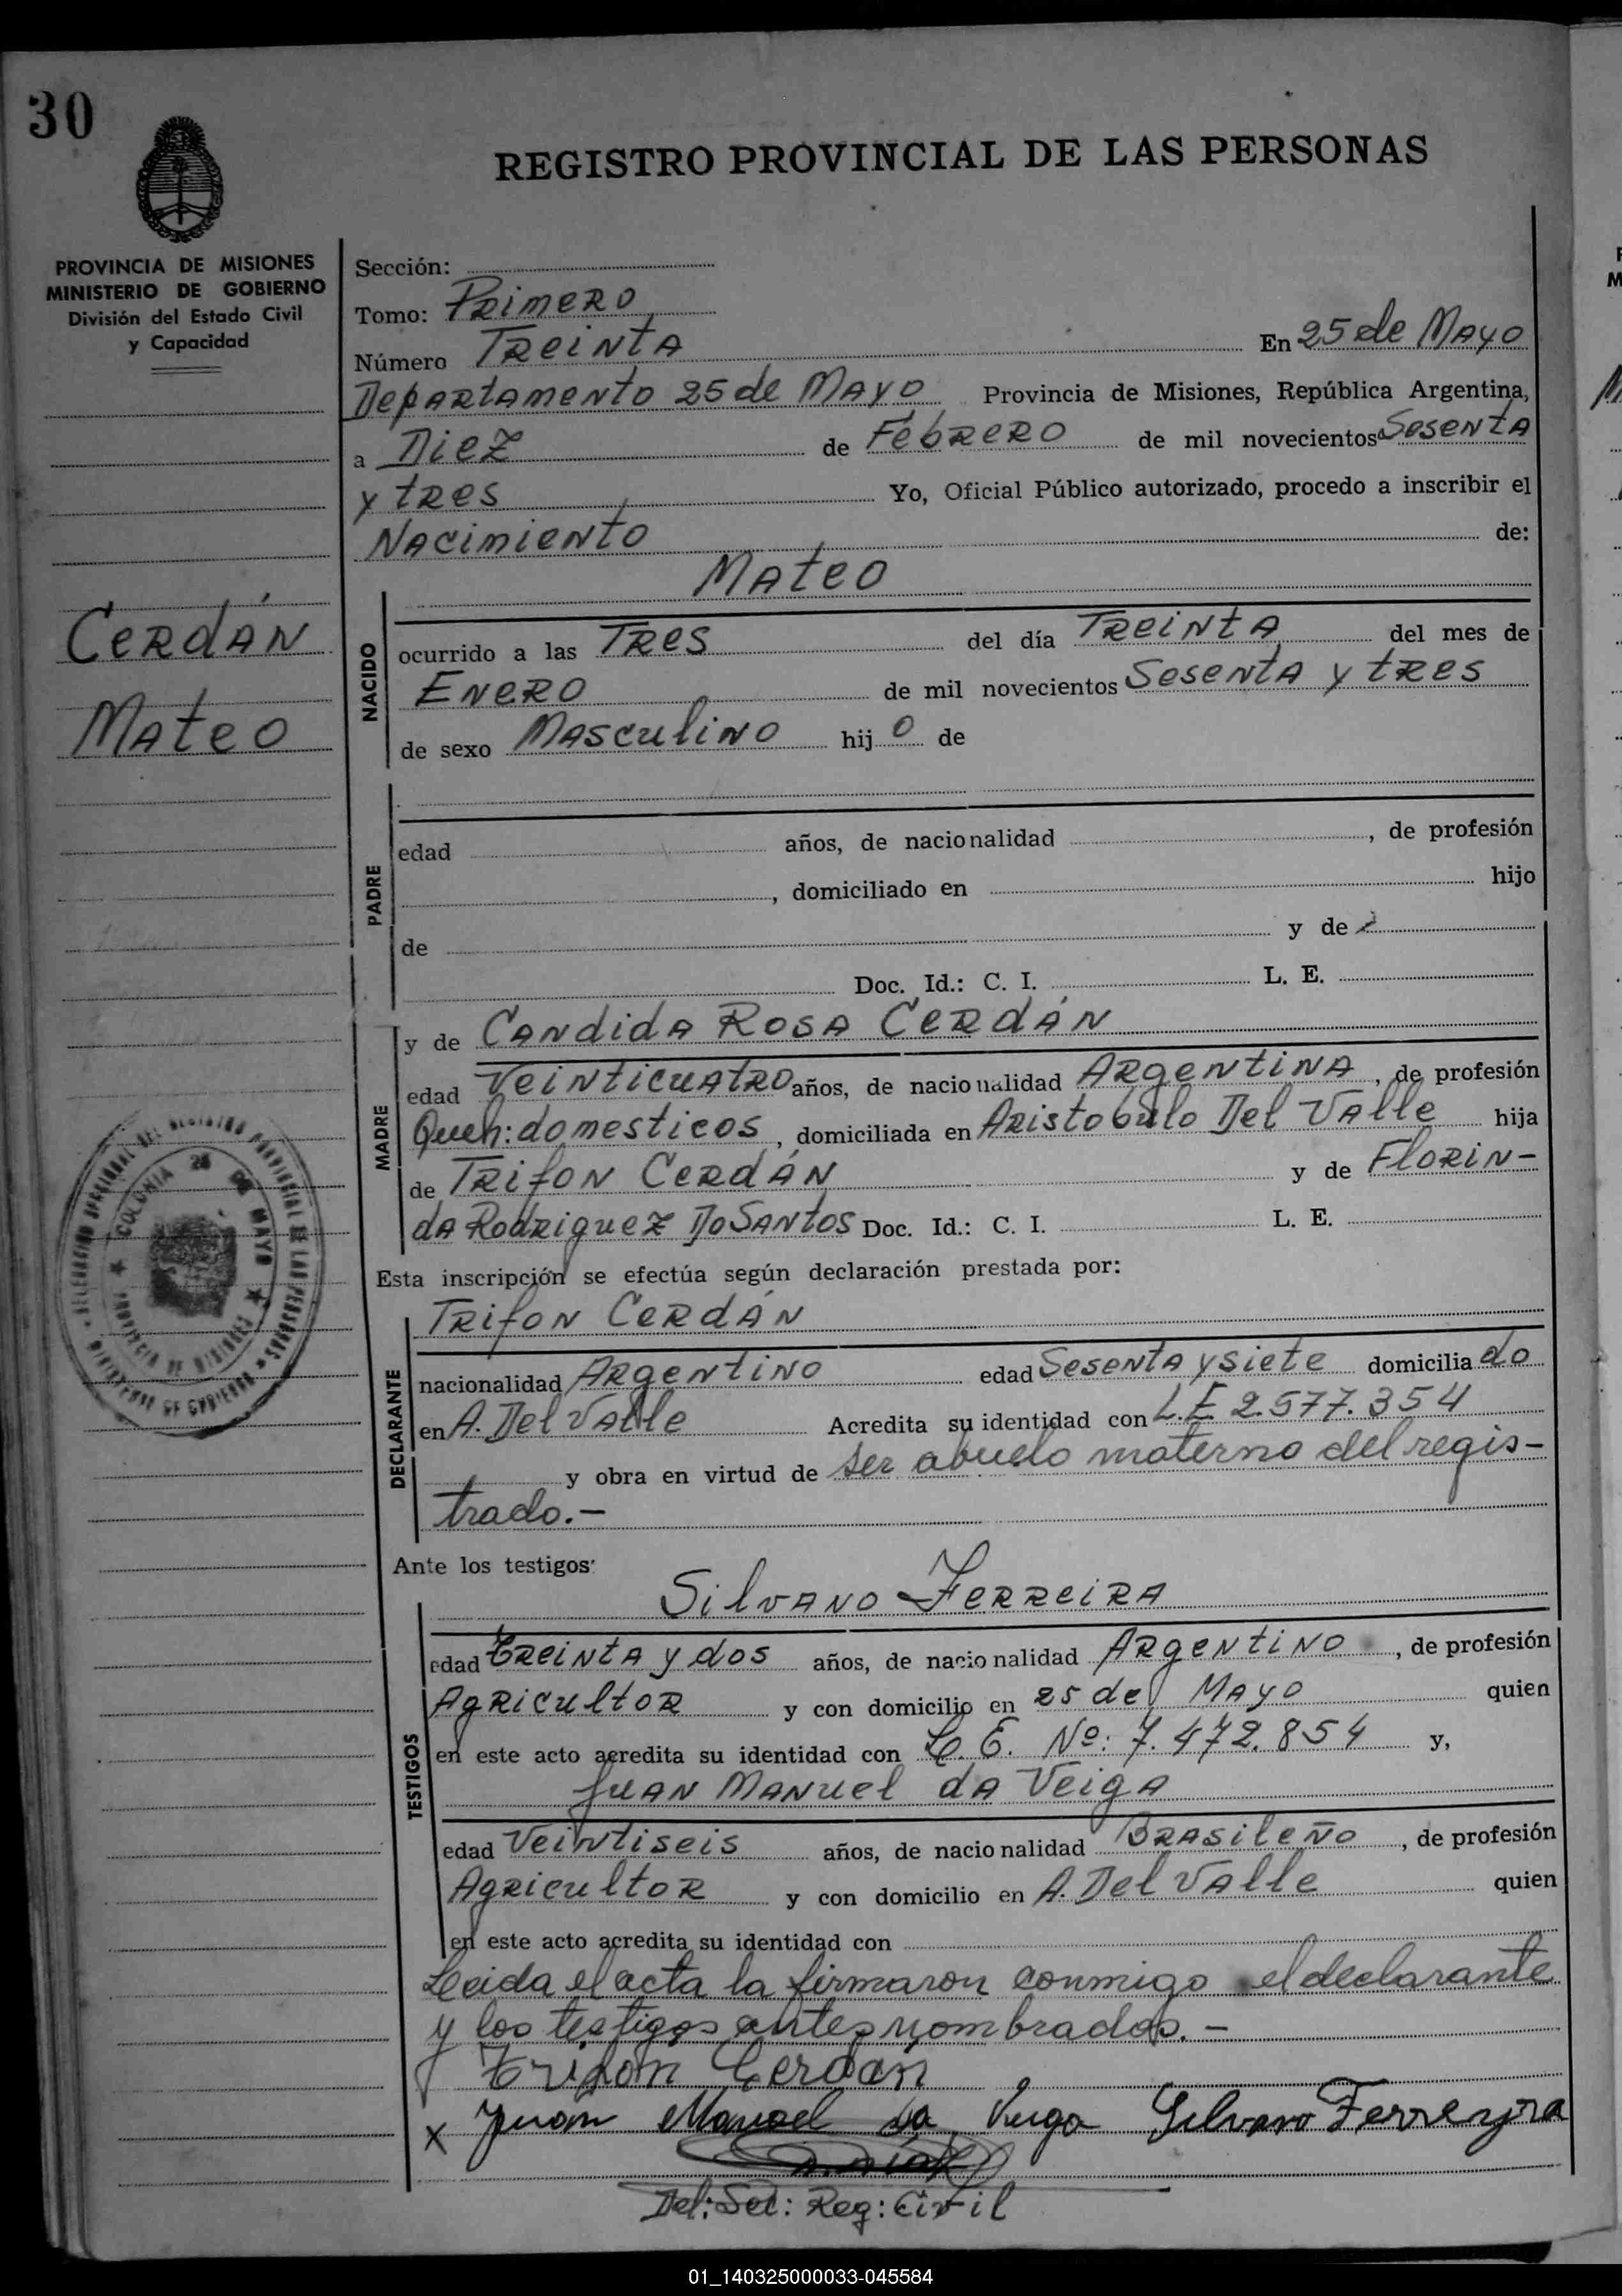 30
REGISTRO PROVINCIAL DE LAS PERSONAS
PROVINCIA DE MISIONES
MINISTERIO DE GOBIERNO
División del Estado Civil
y Capacidad
Sección:
Tomo: Primero
Número Treinta En 25 de Mayo
Departamento 25 de Mayo Provincia de Misiones, República Argentina,
a Diez de Febrero de mil novecientos Sesenta
y tres Yo, Oficial Público autorizado, procedo a inscribir el
Nacimiento de:
Mateo
Cerdán
Mateo
NACIDO
ocurrido a las Tres del día Treinta del mes de
Enero de mil novecientos Sesenta y tres
de sexo Masculino hijo de
PADRE
edad años, de nacionalidad , de profesión
, domiciliado en hijo
de y de
Doc. Id.: C. I. L. E.
MADRE
y de Candida Rosa Cerdán
edad Veinticuatro años, de nacionalidad Argentina, de profesión
Queh: domesticos, domiciliada en Aristobulo Del Valle hija
de Trifon Cerdán y de Florin-
da Rodriguez DoSantos Doc. Id.: C. I. L. E.
COLONIA 25 DE MAYO
PROVINCIA DE MISIONES
Esta inscripción se efectúa según declaración prestada por:
DECLARANTE
Trifon Cerdán
nacionalidad Argentino edad Sesenta y siete domiciliado
en A. Del Valle Acredita su identidad con L.E 2.577.354
y obra en virtud de ser abuelo materno del regis-
trado.-
Ante los testigos:
TESTIGOS
Silvano Ferreira
edad treinta y dos años, de nacionalidad Argentino, de profesión
Agricultor y con domicilio en 25 de Mayo quien
en este acto acredita su identidad con L. E. Nº: 7.472.854 y,
Juan Manuel da Veiga
edad Veintiseis años, de nacionalidad Brasileño, de profesión
Agricultor y con domicilio en A. Del Valle quien
en este acto acredita su identidad con
Leida el acta la firmaron conmigo el declarante
y los testigos antes nombrados.-
Trifon Cerdan
x Juan Manoel da Veiga Silvano Ferreyra
Del: Sec: Reg: Civil
01_140325000033-045584